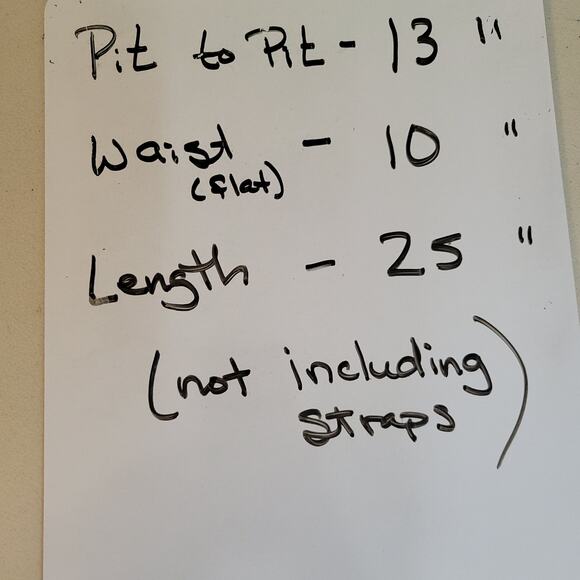 Pit to Pit - 13 "
Waist - 10 "
(flat)
Length - 25 "
(not including
straps)